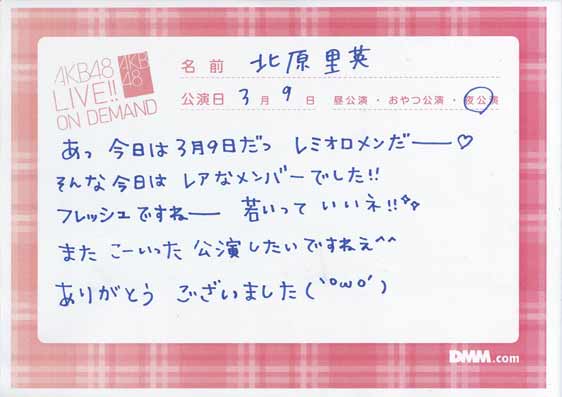 AKB48
LIVE!!
ON DEMAND
AKB
48
名前 北原里英
公演日 3月9日 昼公演・おやつ公演・夜公演
あっ 今日は3月9日だっ レミオロメンだー♡
そんな今日は レアなメンバーでした!!
フレッシュですねー 若いって いいネ!!✧✧
また こーいった 公演したいですねぇ^^
ありがとう ございました(`°ω°´)
DMM.com